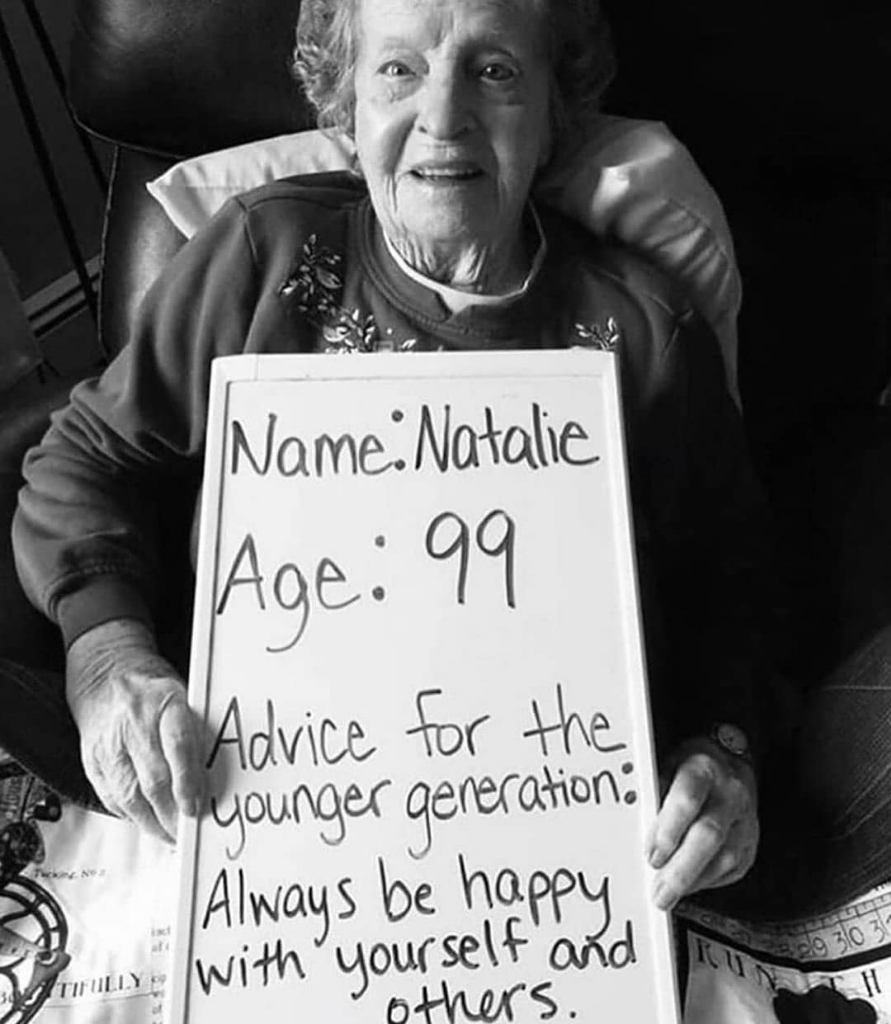 Name: Natalie
Age: 99
Advice for the
younger generation:
Always be happy
with yourself and
others.
Tucking, No 2
TIFULLY
29 30 3
RUN TH